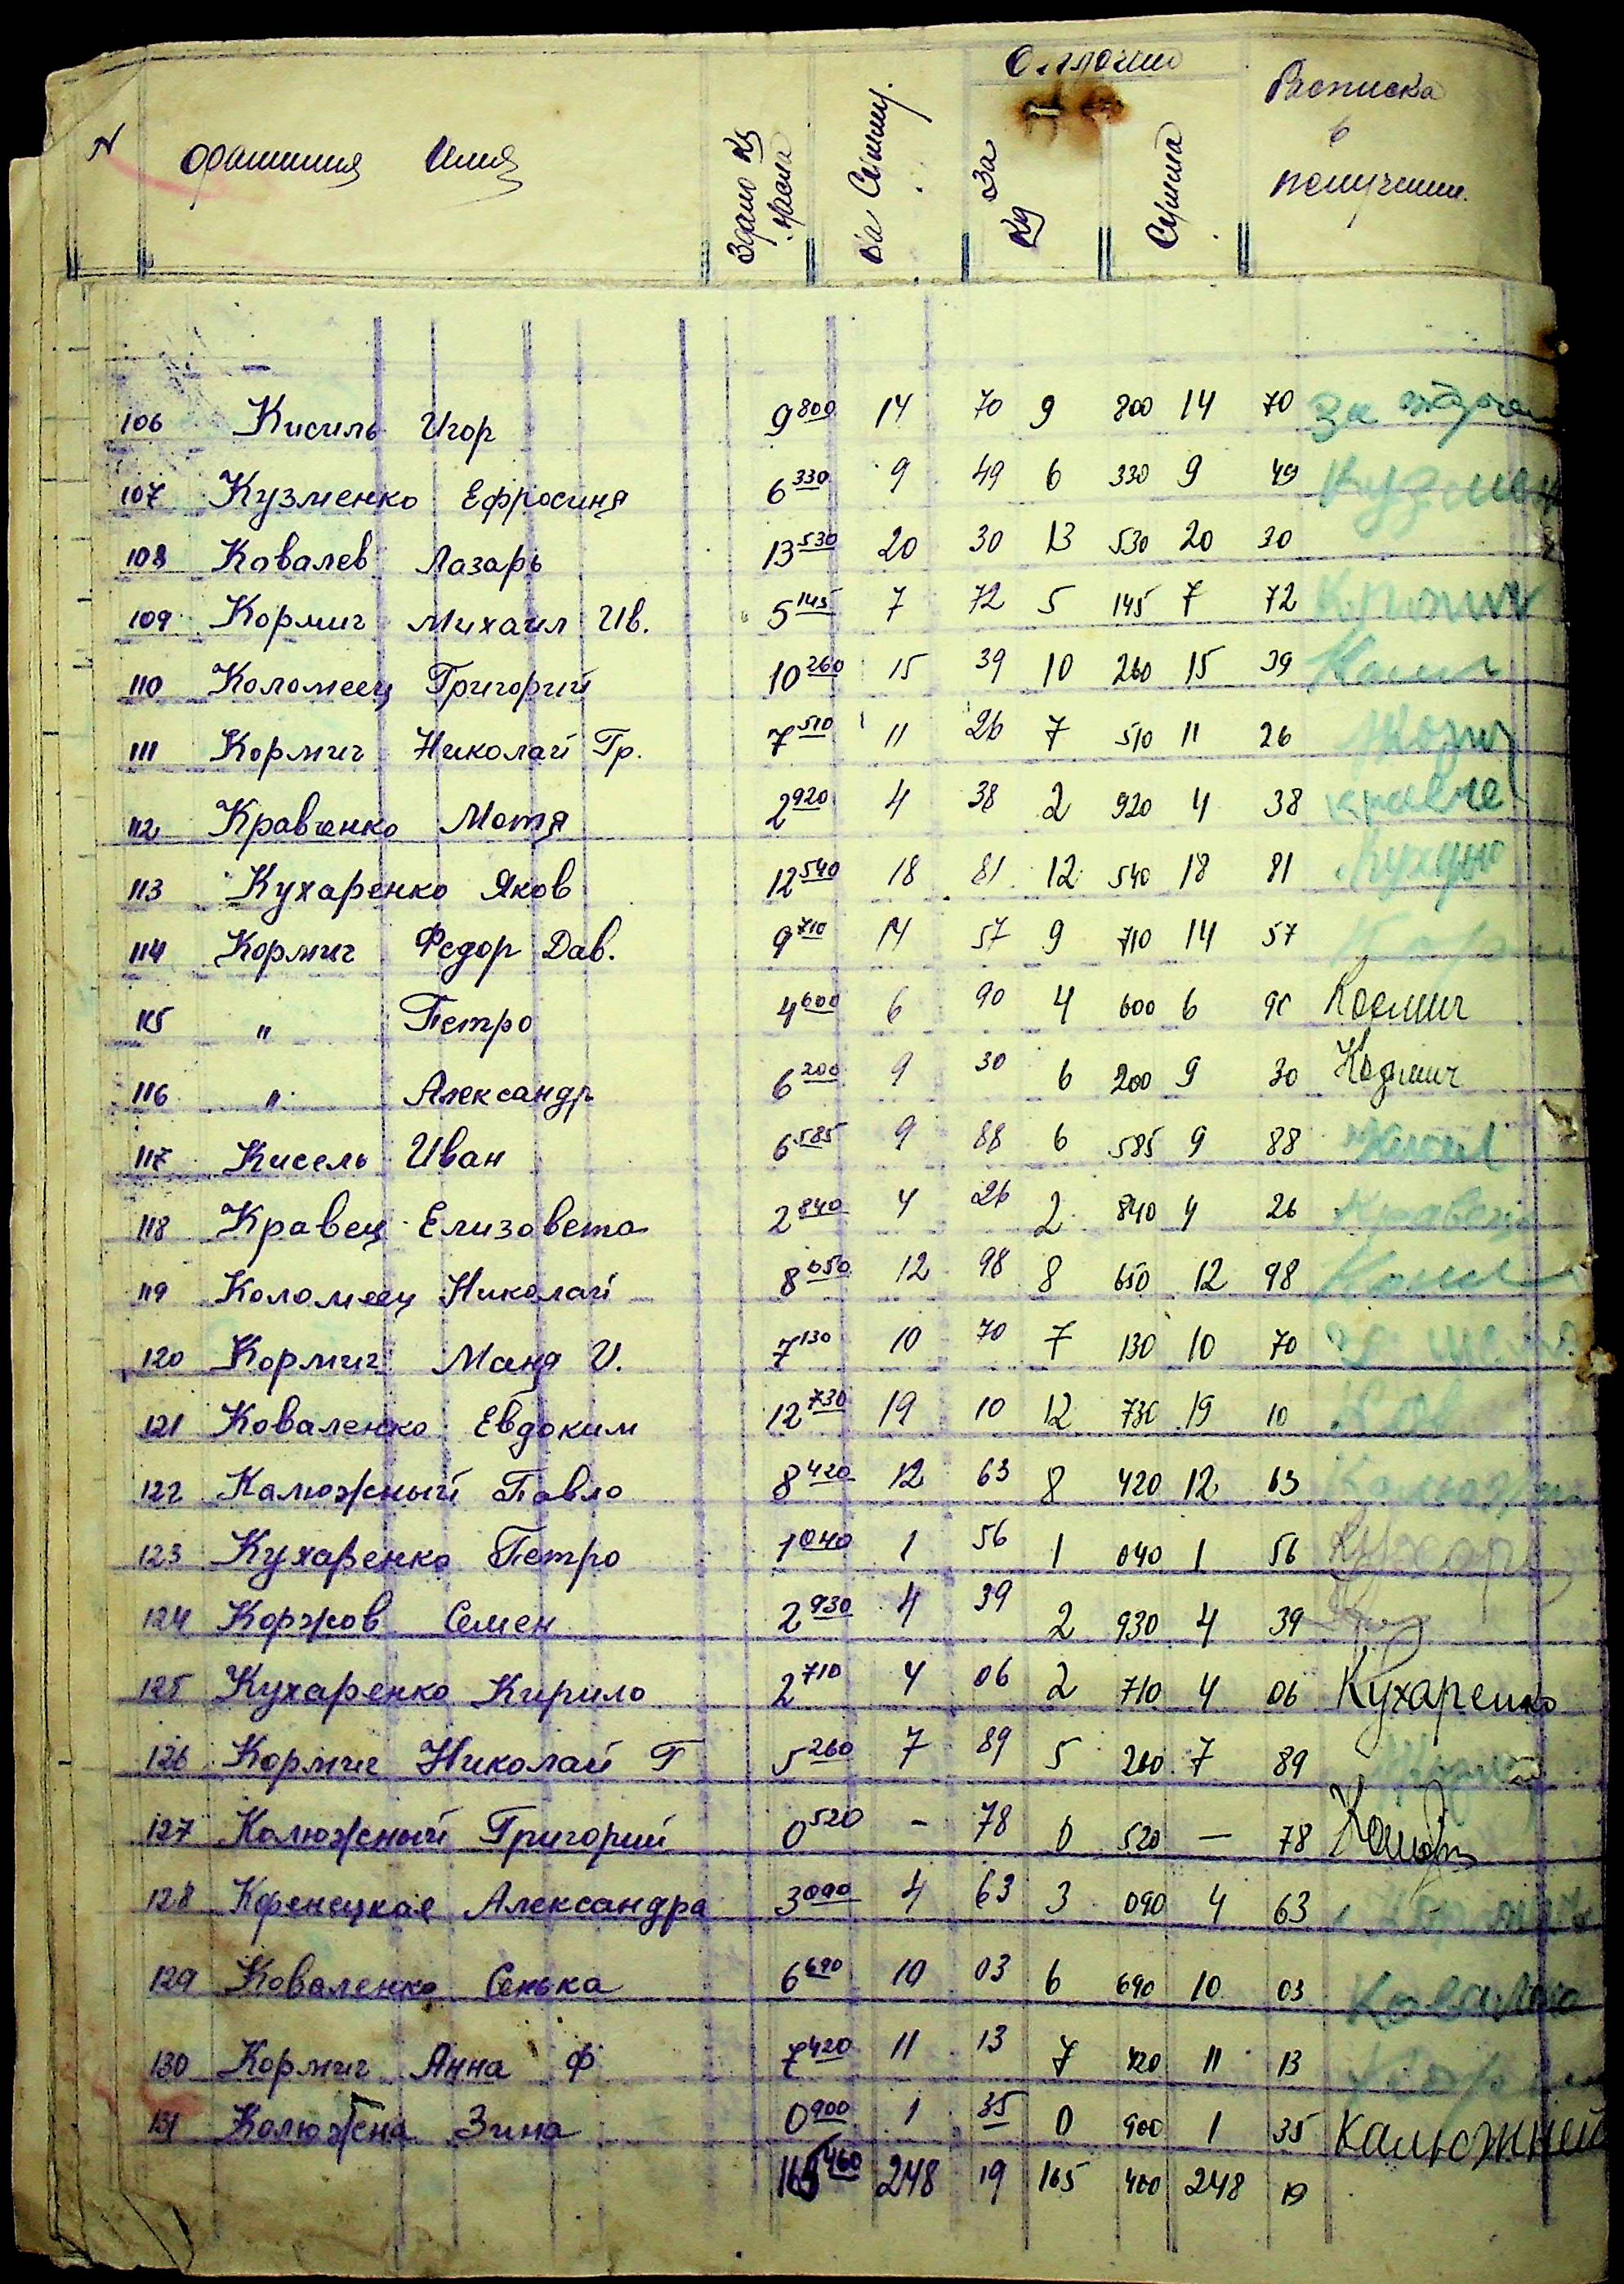 N Фамилия Имя Здано кг масла На Сумму За кг Сумма Расписка в получении.
106 Кисиль Игор 9 800 14 70 9 800 14 70 За
107 Кузменко Ефросиня 6 330 9 49 6 330 9 49 Кузмен
108 Ковалев Лазарь 13 530 20 30 13 530 20 30
109 Кормич Михаил Ив. 5 145 7 72 5 145 7 72
110 Коломеец Григорий 10 260 15 39 10 260 15 39
111 Кормич Николай Гр. 7 510 11 26 7 510 11 26
112 Кравченко Мотя 2 920 4 38 2 920 4 38 Кравче
113 Кухаренко Яков 12 540 18 81 12 540 18 81
114 Кормич Федор Дав. 9 710 14 57 9 710 14 57
115 " Петро 4 600 6 90 4 600 6 90 Кормич
116 " Александр 6 200 9 30 6 200 9 30 Кормич
117 Кисель Иван 6 585 9 88 6 585 9 88
118 Кравец Елизовета 2 840 4 26 2 840 4 26 Кравец
119 Коломеец Николай 8 650 12 98 8 650 12 98
120 Кормич Маня И. 7 130 10 70 7 130 10 70
121 Коваленко Евдоким 12 730 19 10 12 730 19 10
122 Калюжный Павло 8 420 12 63 8 420 12 63
123 Кухаренко Петро 1 040 1 56 1 040 1 56 Кухар
124 Коржов Семен 2 930 4 39 2 930 4 39
125 Кухаренко Кирило 2 710 4 06 2 710 4 06 Кухаренко
126 Кормич Николай Г 5 260 7 89 5 260 7 89
127 Калюжный Григорий 0 520 - 78 0 520 — 78
128 Александра 3 090 4 63 3 090 4 63
129 Коваленко Сенька 6 690 10 03 6 690 10 03
130 Кормич Анна Ф 7 420 11 13 7 420 11 13
131 Калюжна Зина 0 900 1 35 0 900 1 35 Калюжней
165 460 248 19 165 460 248 19